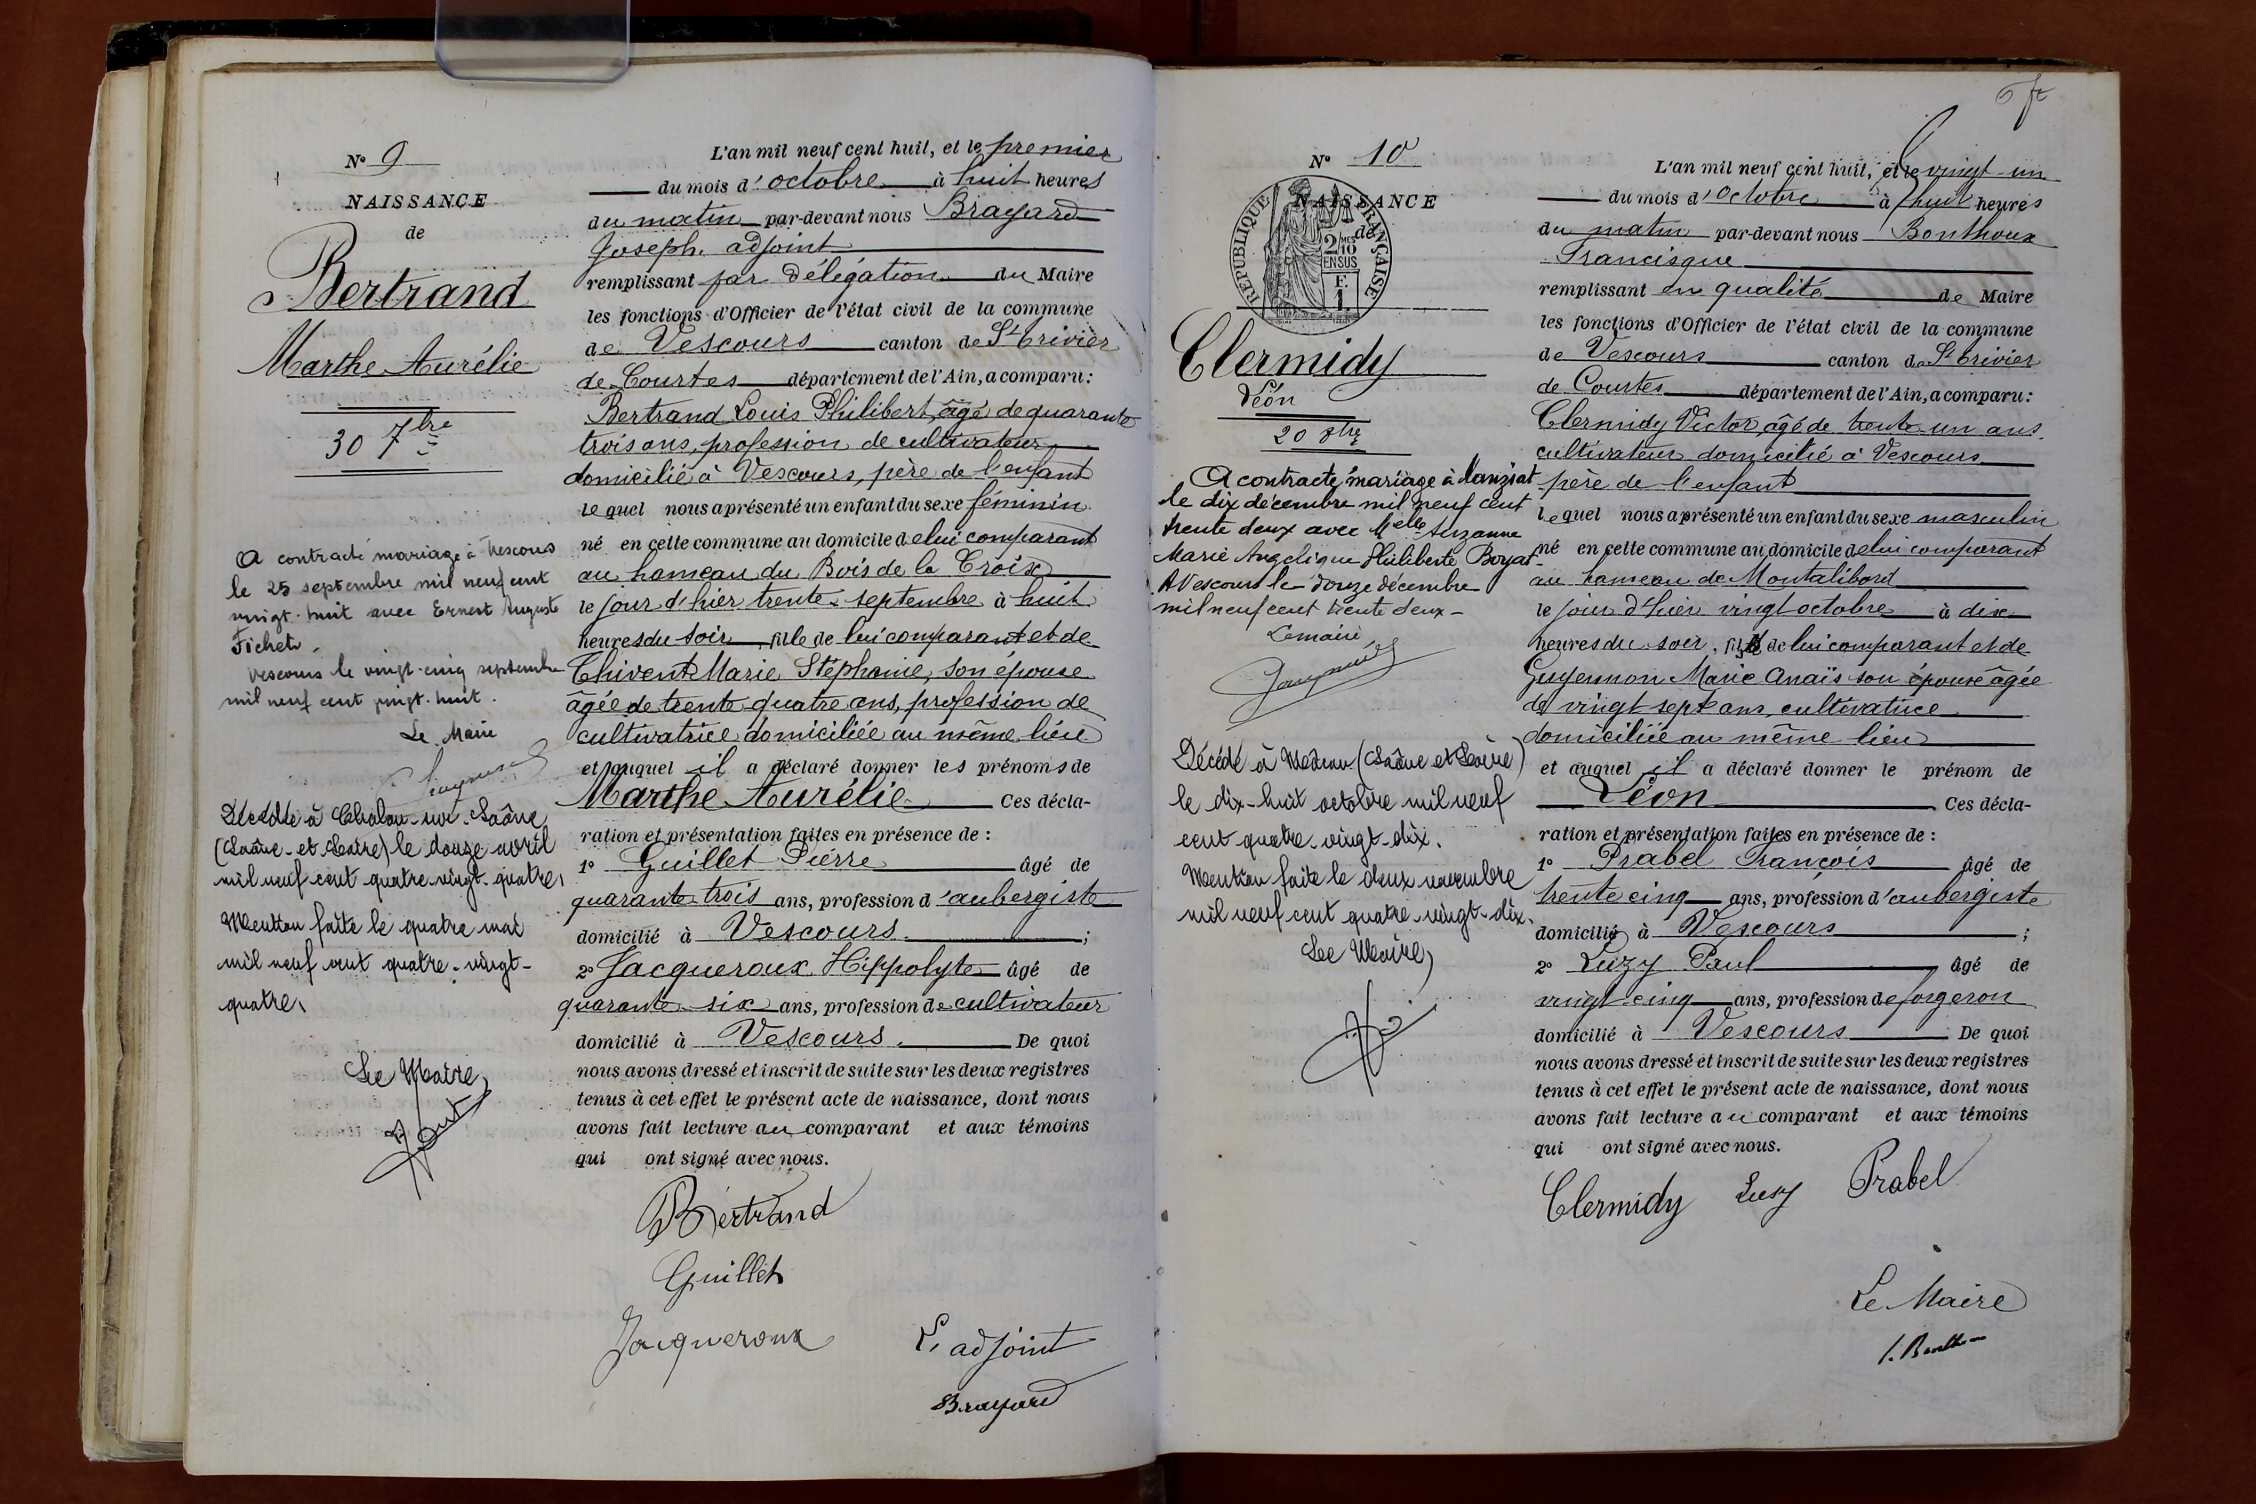 N° 9
NAISSANCE
de
Bertrand
Marthe Aurélie
30 7bre
A contracté mariage à Vescours
le 25 septembre mil neuf cent
vingt-huit avec Ernest Auguste
Fichet.
Vescours le vingt-cinq septembre
mil neuf cent vingt-huit.
Le Maire
Décédée à Chalon-sur-Saône
(Saône-et-Loire) le douze avril
mil neuf cent quatre-vingt-quatre,
Mention faite le quatre mai
mil neuf cent quatre-vingt-
quatre,
Le Maire,
L'an mil neuf cent huit, et le premier
du mois d'octobre à huit heures
du matin par-devant nous Brayard
Joseph, adjoint
remplissant par délégation du Maire
les fonctions d'Officier de l'état civil de la commune
de Vescours canton de St Trivier
de Courtes département de l'Ain, a comparu:
Bertrand Louis Philibert, âgé de quarante
trois ans, profession de cultivateur
domicilié à Vescours, père de l'enfant
lequel nous a présenté un enfant du sexe féminin
né en cette commune au domicile de lui comparant
au hameau du Bois de la Croix
le jour d'hier trente septembre à huit
heures du soir, fille de lui comparant et de
Chivent Marie Stéphanie, son épouse
âgée de trente quatre ans, profession de
cultivatrice domiciliée au même lieu
et auquel il a déclaré donner les prénoms de
Marthe Aurélie Ces décla-
ration et présentation faites en présence de :
1° Guillet Pierre âgé de
quarante trois ans, profession d'aubergiste
domicilié à Vescours ;
2° Jacqueroux Hippolyte âgé de
quarante six ans, profession de cultivateur
domicilié à Vescours. De quoi
nous avons dressé et inscrit de suite sur les deux registres
tenus à cet effet le présent acte de naissance, dont nous
avons fait lecture au comparant et aux témoins
qui ont signé avec nous.
Bertrand
Guillet
Jacqueroux
L'adjoint
Brayard
N° 10
NAISSANCE
de
RÉPUBLIQUE FRANÇAISE
2/10 MES
EN SUS
F.
1
Clermidy
Léon
20 8bre
A contracté mariage à Manziat
le dix décembre mil neuf cent
trente deux avec Melle Suzanne
Marie Angélique Philiberte Boyat
A Vescours le douze décembre
mil neuf cent trente deux -
Le maire
Décédé à (Saône et Loire)
le dix-huit octobre mil neuf
cent quatre-vingt-dix.
Mention faite le deux novembre
mil neuf cent quatre-vingt-dix.
Le Maire,
L'an mil neuf cent huit, et le vingt-un
du mois d'Octobre à huit heures
du matin par-devant nous Bonthoux
Francisque
remplissant en qualité de Maire
les fonctions d'Officier de l'état civil de la commune
de Vescours canton de St Trivier
de Courtes département de l'Ain, a comparu:
Clermidy Victor, âgé de trente un ans
cultivateur domicilié à Vescours
père de l'enfant
lequel nous a présenté un enfant du sexe masculin
né en cette commune au domicile de lui comparant
au hameau de Montalibord
le jour d'hier vingt octobre à dix
heures du soir, fils de lui comparant et de
Guyennon Marie Anaïs son épouse âgée
de vingt sept ans, cultivatrice
domiciliée au même lieu
et auquel il a déclaré donner le prénom de
Léon Ces décla-
ration et présentation faites en présence de :
1° Prabel François âgé de
trente cinq ans, profession d'aubergiste
domicilié à Vescours ;
2° Luzy Paul âgé de
vingt cinq ans, profession de forgeron
domicilié à Vescours De quoi
nous avons dressé et inscrit de suite sur les deux registres
tenus à cet effet le présent acte de naissance, dont nous
avons fait lecture au comparant et aux témoins
qui ont signé avec nous.
Clermidy Luzy Prabel
Le Maire